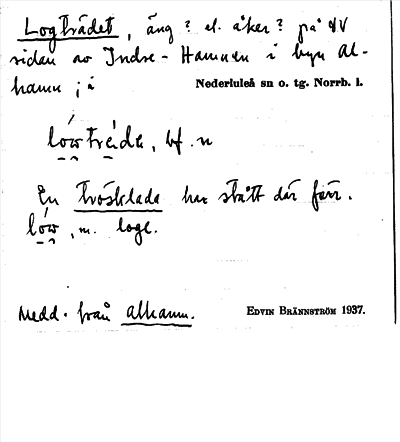 Logträdet, äng? el. åker? på NV
sidan av Indre-Hamnen i byn Al-
hamn; i Nederluleå sn o. tg. Norrb. l.
lówtréida, bf. n
En trösklada har stått där förr.
lów, m. loge.
Medd. från Alhamn. EDVIN BRÄNNSTRÖM 1937.